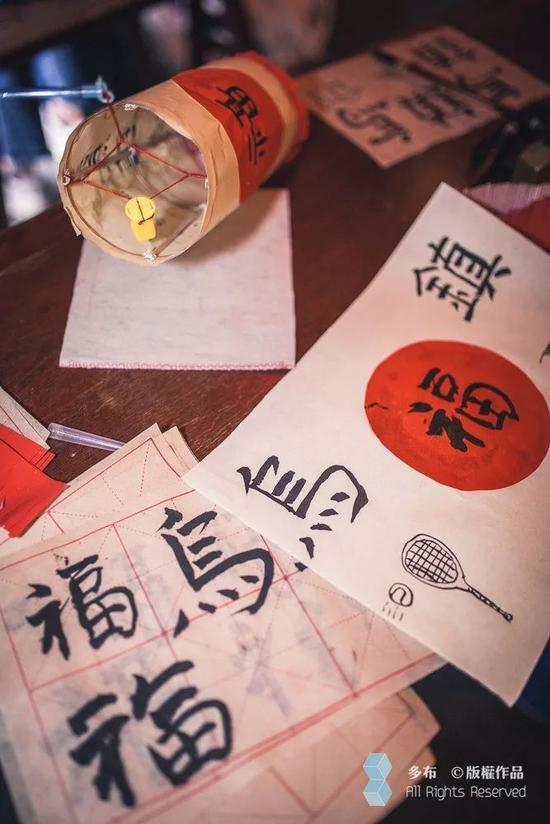 鎮
福
烏
福 烏
福
多布 ©版權作品
All Rights Reserved